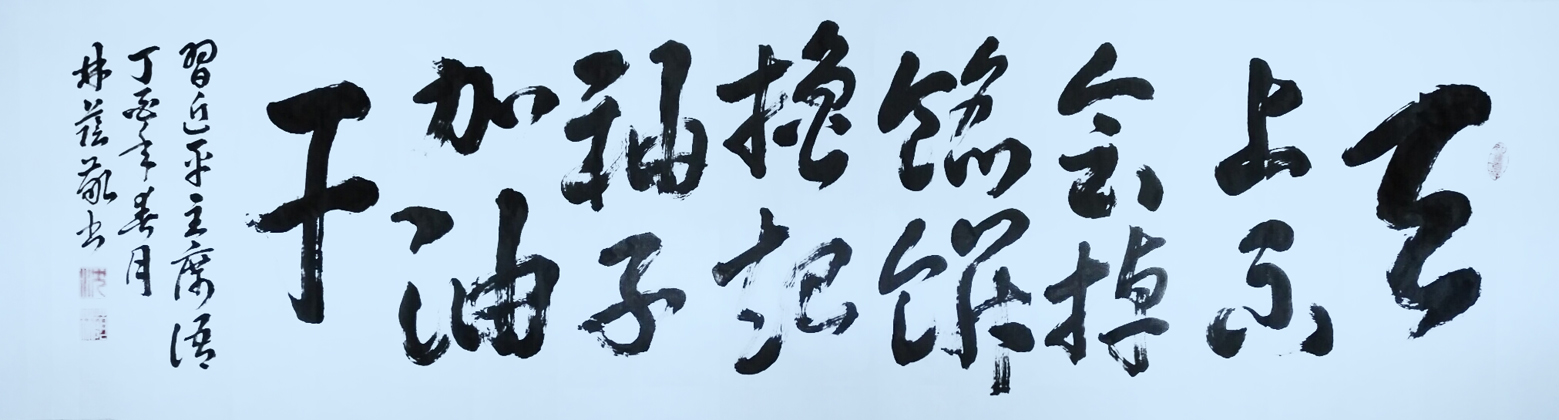 天
上不
会掉
馅饼
撸起
袖子
加油
干
習近平主席语
丁酉年春月
林蔭敬书